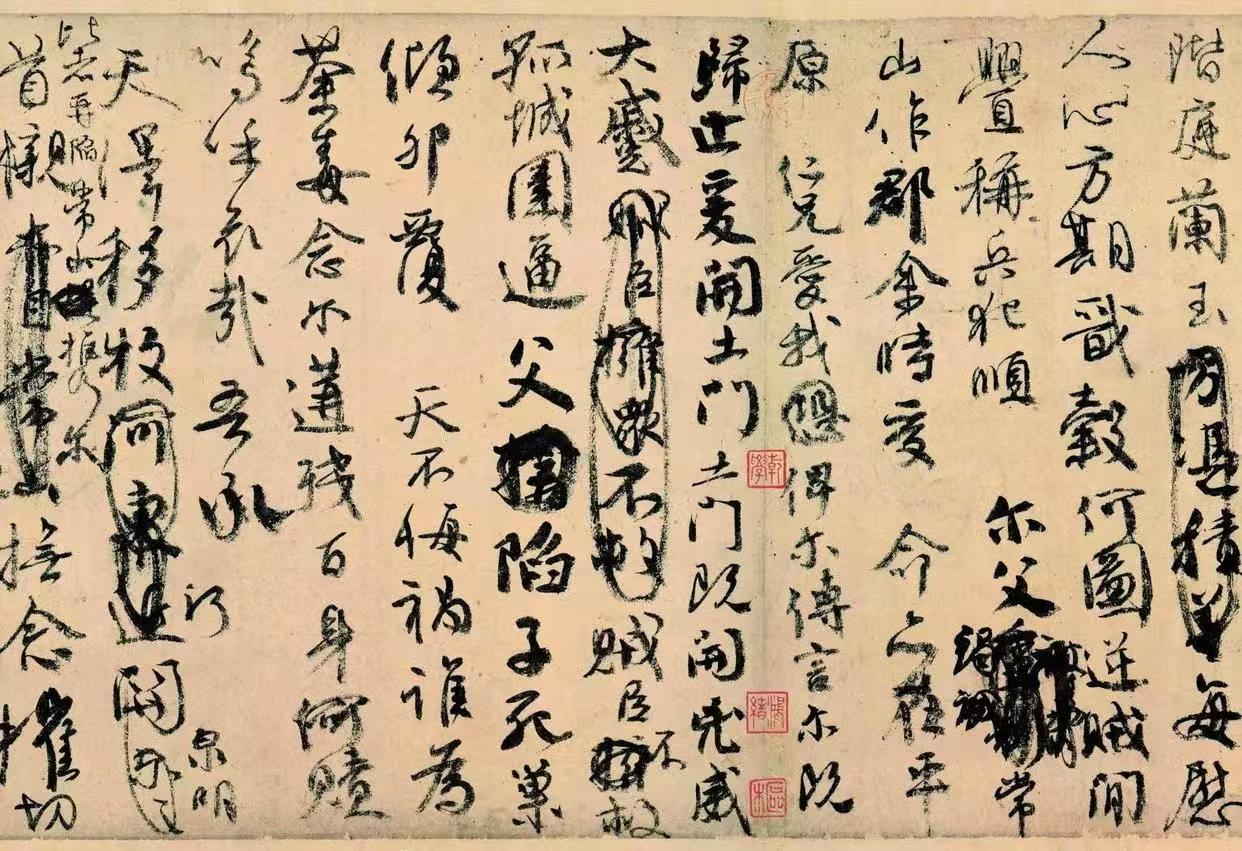 階庭蘭玉每慰
人心方期戩穀何圖逆賊間
釁稱兵犯順尔父竭誠常
山作郡余時受命亦在平
原仁兄愛我恐俾尔傳言尔既
歸止爰開土門土門既開兇威
大蹙賊臣擁衆不救賊臣不救
孤城圍逼父陷子死巢
傾卵覆天不悔禍誰為
荼毒念尔遘殘百身何贖
嗚呼哀哉吾承
天澤移牧河關泉明
比者再陷常山攜尔
首櫬常山撫念摧切